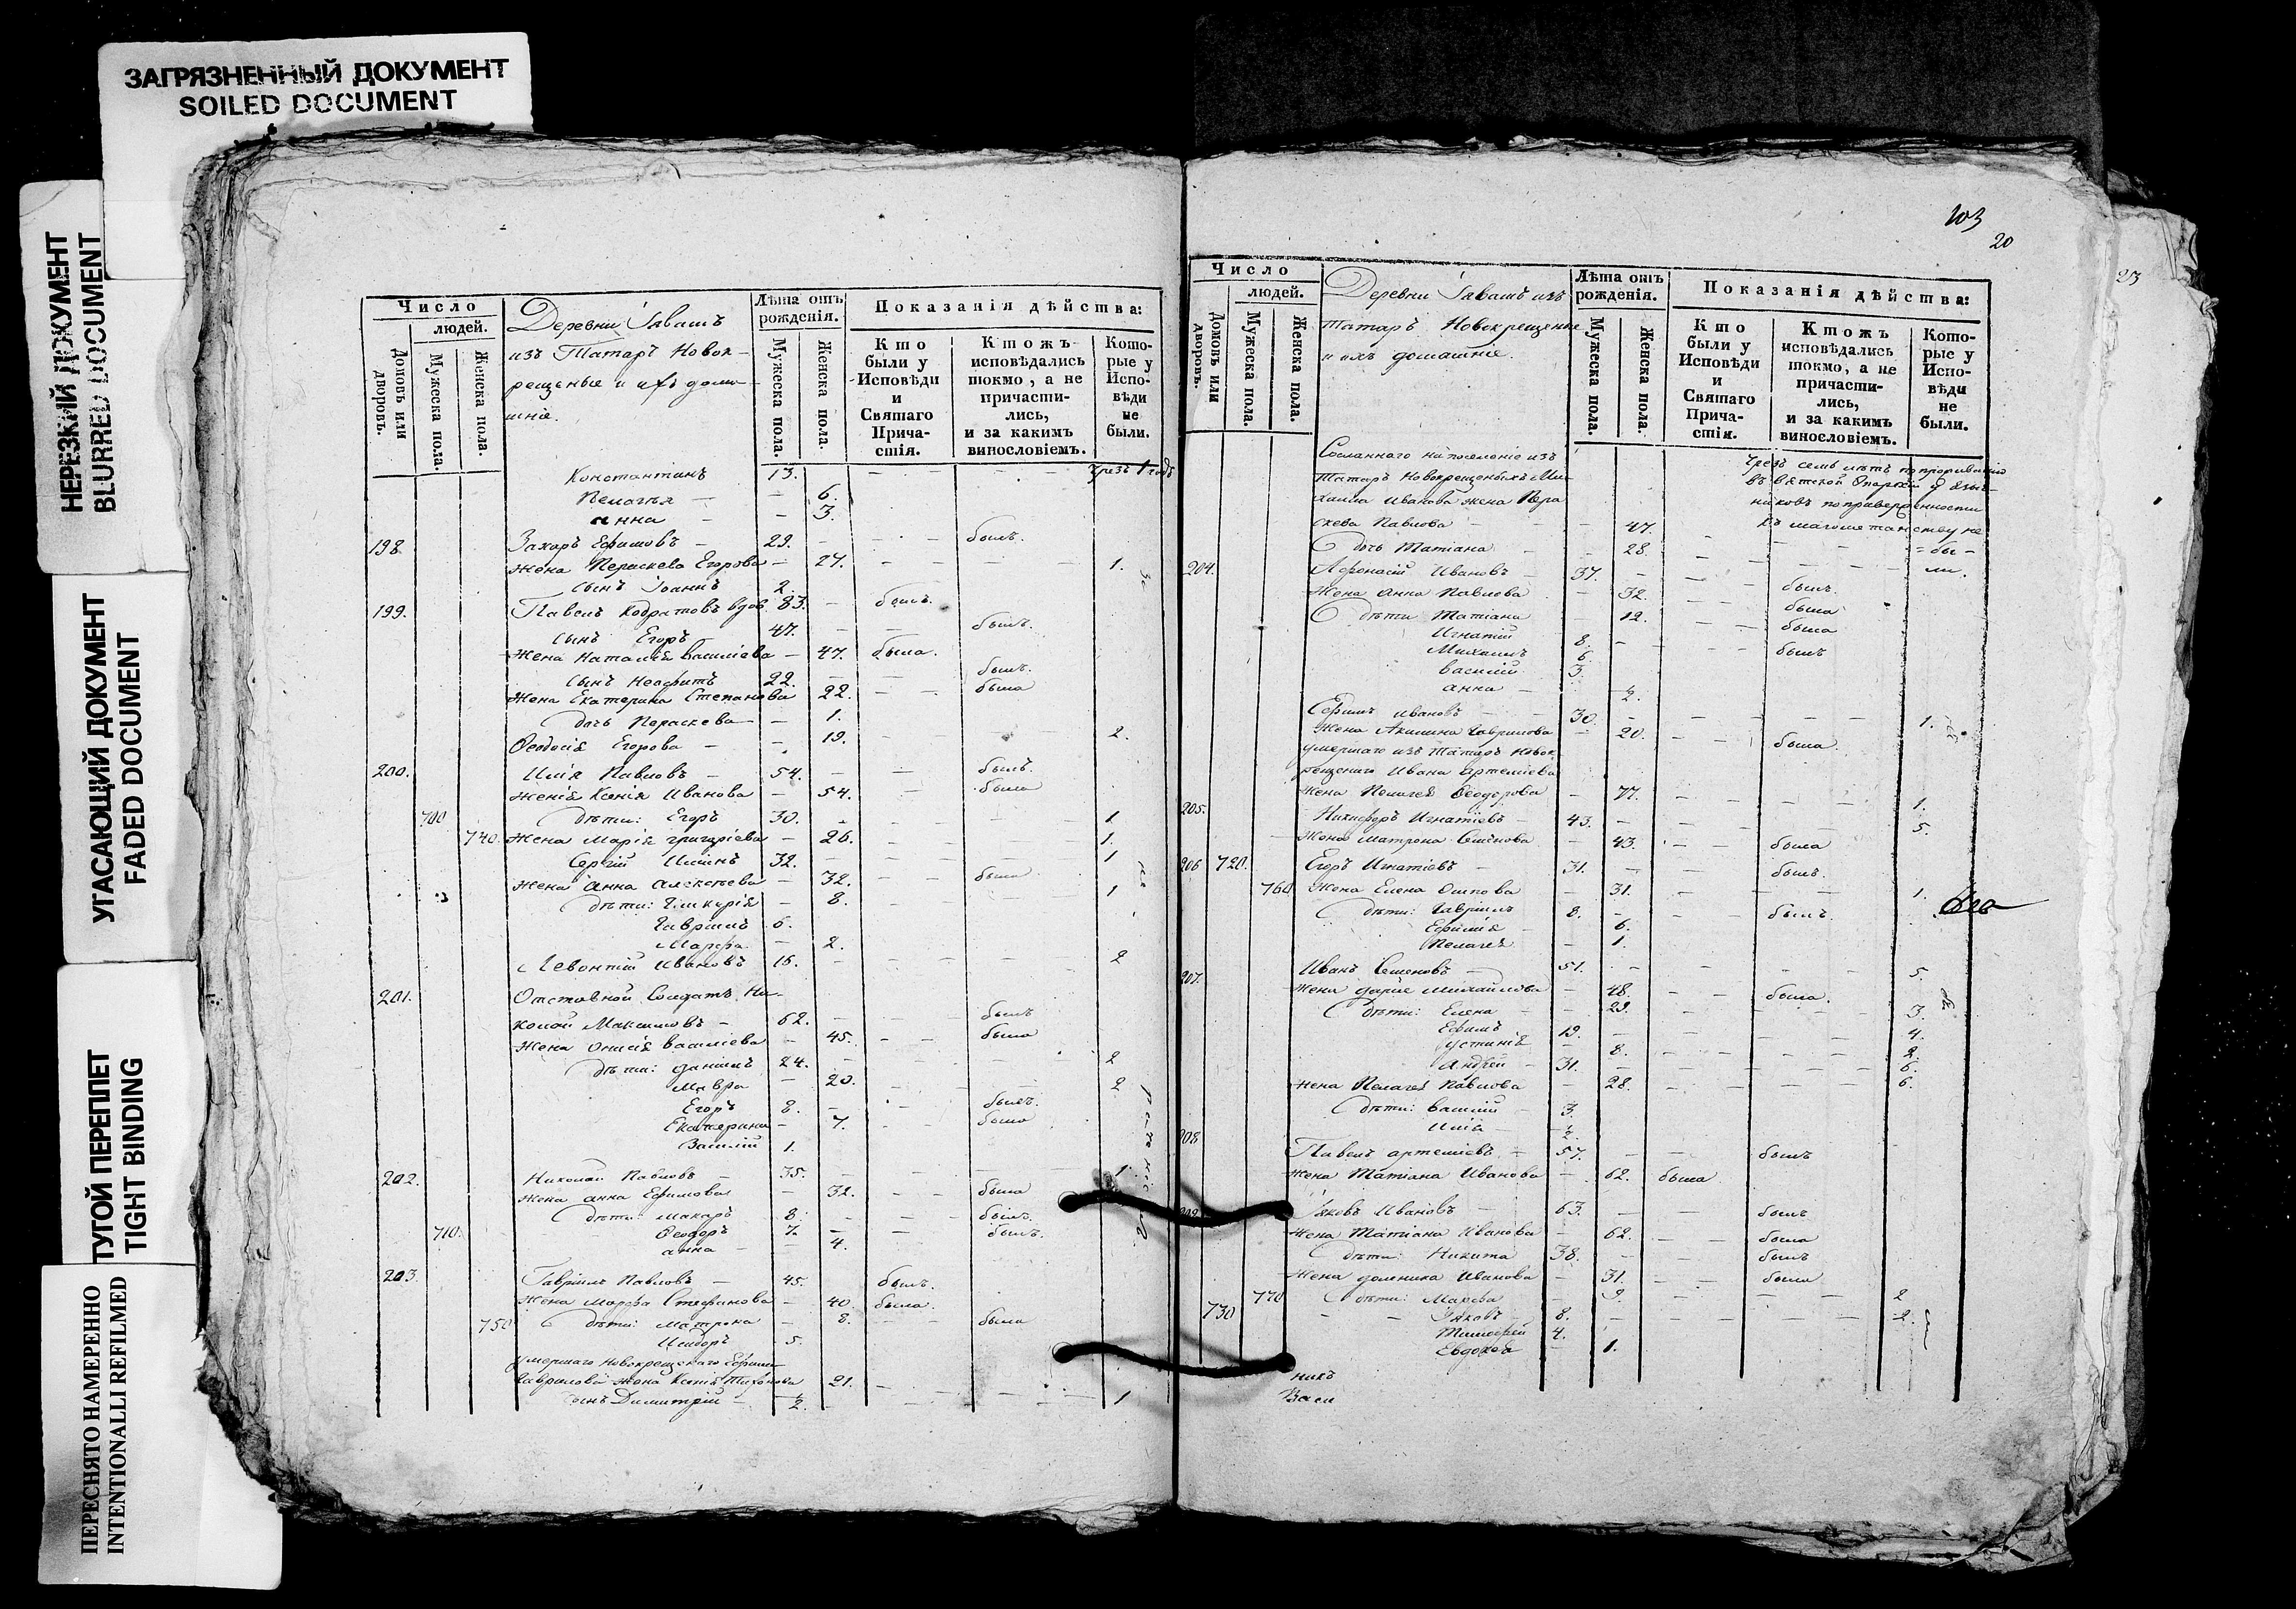 ЗАГРЯЗНЕННЫЙ ДОКУМЕНТ
SOILED DOCUMENT
НЕРЕЗКИЙ ДОКУМЕНТ
BLURRED DOCUMENT
УГАСАЮЩИЙ ДОКУМЕНТ
FADED DOCUMENT
ТУГОЙ ПЕРЕПЛЕТ
TIGHT BINDING
ПЕРЕСНЯТО НАМЕРЕННО
INTENTIONALLI REFILMED
Число
людей.
Домовъ или дворовъ.
Мужеска пола.
Женска пола.
Деревни Гявашъ
изъ Татаръ Новок-
рещеные и ихъ дома-
шнiе.
Лѣта отъ рожденiя.
Мужеска пола.
Женска пола.
Показанiя дѣйства:
Кто были у Исповѣди и Святаго Прича-стiя.
Ктожъ исповѣдались токмо, а не причасти-лись, и за какимъ винословiемъ.
Кото-рые у Испо-вѣди не были.
Константинъ 13. – – – чрезъ 1 годъ
Пелагея – – 6.
Анна – – 3.
198. Захаръ Ефимовъ – 29. – – – былъ.
Жена Параскева Егорова – 27. – – – 1.
сынъ Iоаннъ 2.
199. Павелъ Кодратовъ вдов. 83. – былъ.
сынъ Егоръ 47. – – былъ.
Жена Наталiя Васильева – 47. была.
сынъ Неофитъ 22. – – былъ.
Жена Екатерина Степанова 22. – – была
дочь Параскева – – 1.
Ѳеодосiя Егорова – – 19. – – – 2.
200. Илiя Павловъ – 54. – – былъ.
Жена Ксенiя Иванова – 54. – была
700 дѣти: Егоръ 30. – – – 1.
740. Жена Марiя Григорiева – 26. – – – 1.
Сергiй Илiинъ 32. – – – 1
Жена Анна Алексѣева – 32. – – была.
дѣти: Гликерiя – 8. – – – 1
Гаврiилъ 6.
Марѳа – 2.
Левонтiй Ивановъ 16. – – – 2
201. Отставной Солдатъ Ни-
колай Максимовъ – 62. – – былъ
Жена Онисiя Васильева – 45. – – была
дѣти: Данiилъ 24. – – – 2
Мавра – 20. – – – 2
Егоръ 8. – – – былъ.
Екатерина – 7. – – была
Василiй 1.
202. Николай Павловъ – 35. – – – 1.
Жена Анна Ефимова – 32. – – была
дѣти: Макаръ 8. – – былъ.
710. Ѳеодоръ 7. – – былъ.
Анна – – 4.
203. Гаврiилъ Павловъ – 45. былъ.
Жена Марѳа Стефанова – 40. была.
750 дѣти: Матрона – 8. – – была
Исидоръ – 5.
умершаго Новокрещенаго Ефима
Гаврилова жена Ксенiя Тихонова 21. –
сынъ Димитрiй – 2. – – – 1
103
20
23
Число
людей.
Домовъ или дворовъ.
Мужеска пола.
Женска пола.
Деревни Гявашъ изъ
Татаръ Новокрещеные
и ихъ домашнiе.
Лѣта отъ рожденiя.
Мужеска пола.
Женска пола.
Показанiя дѣйства:
Кто были у Исповѣди и Святаго Прича-стiя.
Ктожъ исповѣдались токмо, а не причасти-лись, и за какимъ винословiемъ.
Кото-рые у Испо-вѣди не были.
Сосланнаго на поселенiе изъ чрезъ семь лѣтъ
Татаръ Новокрещеныхъ Ми- въ Вятской Епархiи
хаила Иванова жена Пара
скева Павлова – – 47. къ магометанству не
дочь Татiана – – 28. – – – бы –
204. Аѳонасiй Ивановъ – 37. – – – ли.
Жена Анна Павлова – 32. – – былъ.
дѣти Татiана – 12. – – была
Игнатiй 8. – – была
Михаилъ 6. – – былъ
Василiй 3.
Анна – 2.
Ефимъ Ивановъ – 30. – – – 1.
Жена Акилина Гаврилова – 20. – – была.
умершаго изъ Татаръ Новок
рещенаго Ивана Артемiева
Жена Пелагея Ѳеодорова – 77. – – – 1.
205. Никифоръ Игнатiевъ – 43. – – – 5.
Жена Матрона Семенова – 43. – – была
206 720. Егоръ Игнатiевъ – 31. – – былъ.
760 Жена Елена Осипова – 31. – – – 1.
дѣти: Гаврiилъ 8. – – былъ.
Ефимiя – 6.
Пелагея – 1.
207. Иванъ Семеновъ – 51. – – – 5.
Жена Дарья Михайлова – 48. – – была.
дѣти: Елена – 23. – – – 3.
Ефимъ 19. – – – 4.
Устинiя – 8. – – – 2.
Андрей – 31. – – – 6.
Жена Пелагея Павлова – 28. – – – 6.
дѣти: Василiй – 3.
Илiя – 2.
208. Павелъ Артемiевъ – 57. – – былъ
Жена Татiана Иванова – 62. была
209. Яковъ Ивановъ – 63. – – былъ
Жена Татiана Иванова – 62. – – была
дѣти: Никита 38. – – былъ
Жена Домника Иванова – 31. – – была
770 дѣти: Марѳа – 9. – – – 2
730 Яковъ – 8. – – – 2.
Тимоѳей 4.
Евдокея – 1.
никъ
Васи